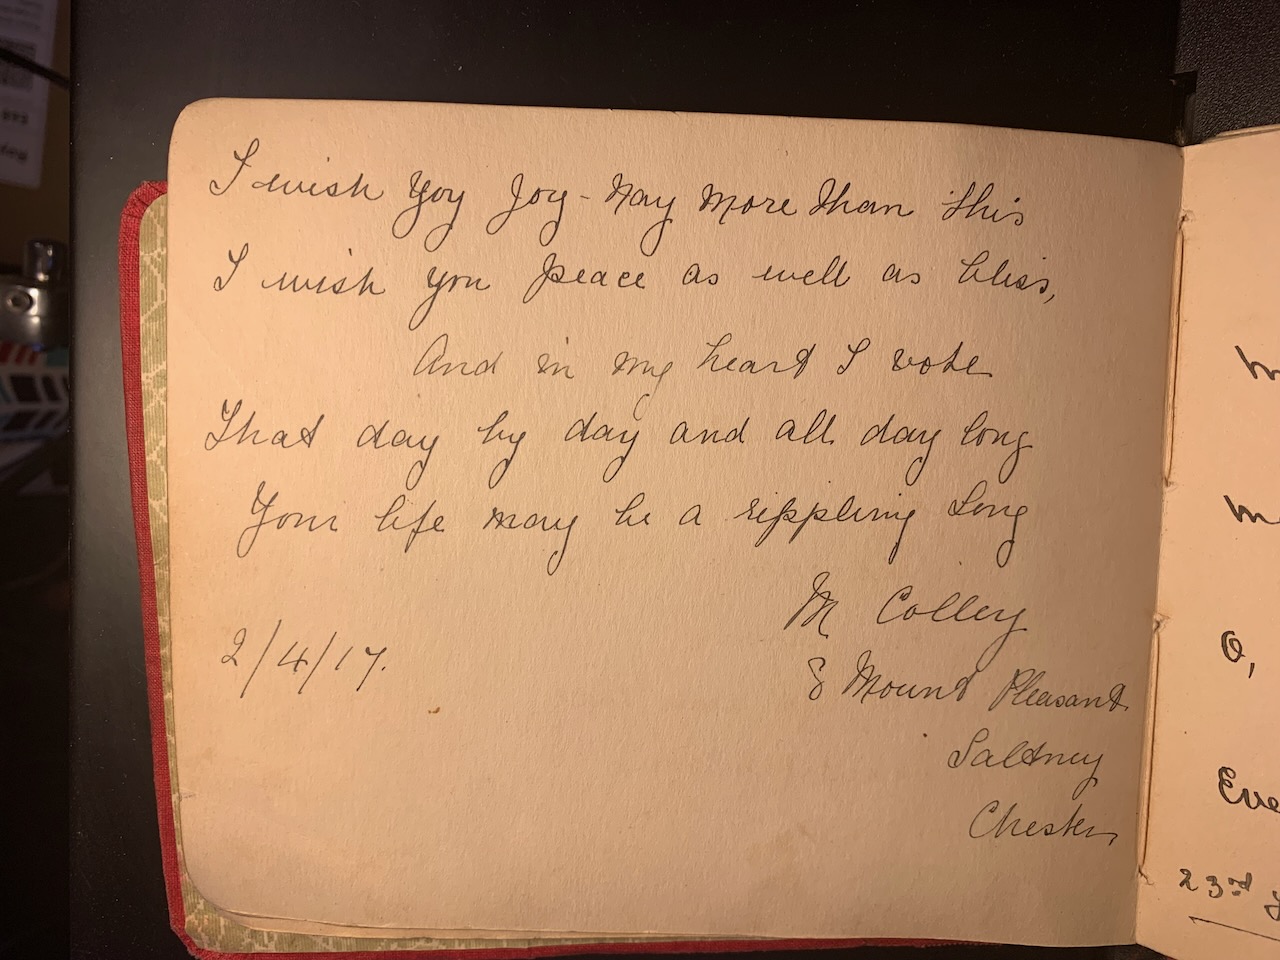 I wish Yoy Joy - Nay More than this
I wish you peace as well as bliss,
And in my heart I vote
That day by day and all day long
Your life may be a rippling Song
M Colley
2/4/17.
8 Mount Pleasant
Saltney
Chester
O,
Eve
23rd